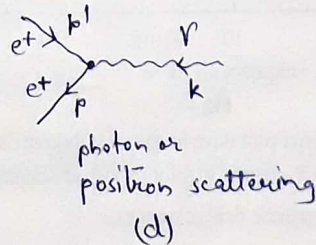 e+ p'
γ
e+
p
k
photon or
positron scattering
(d)